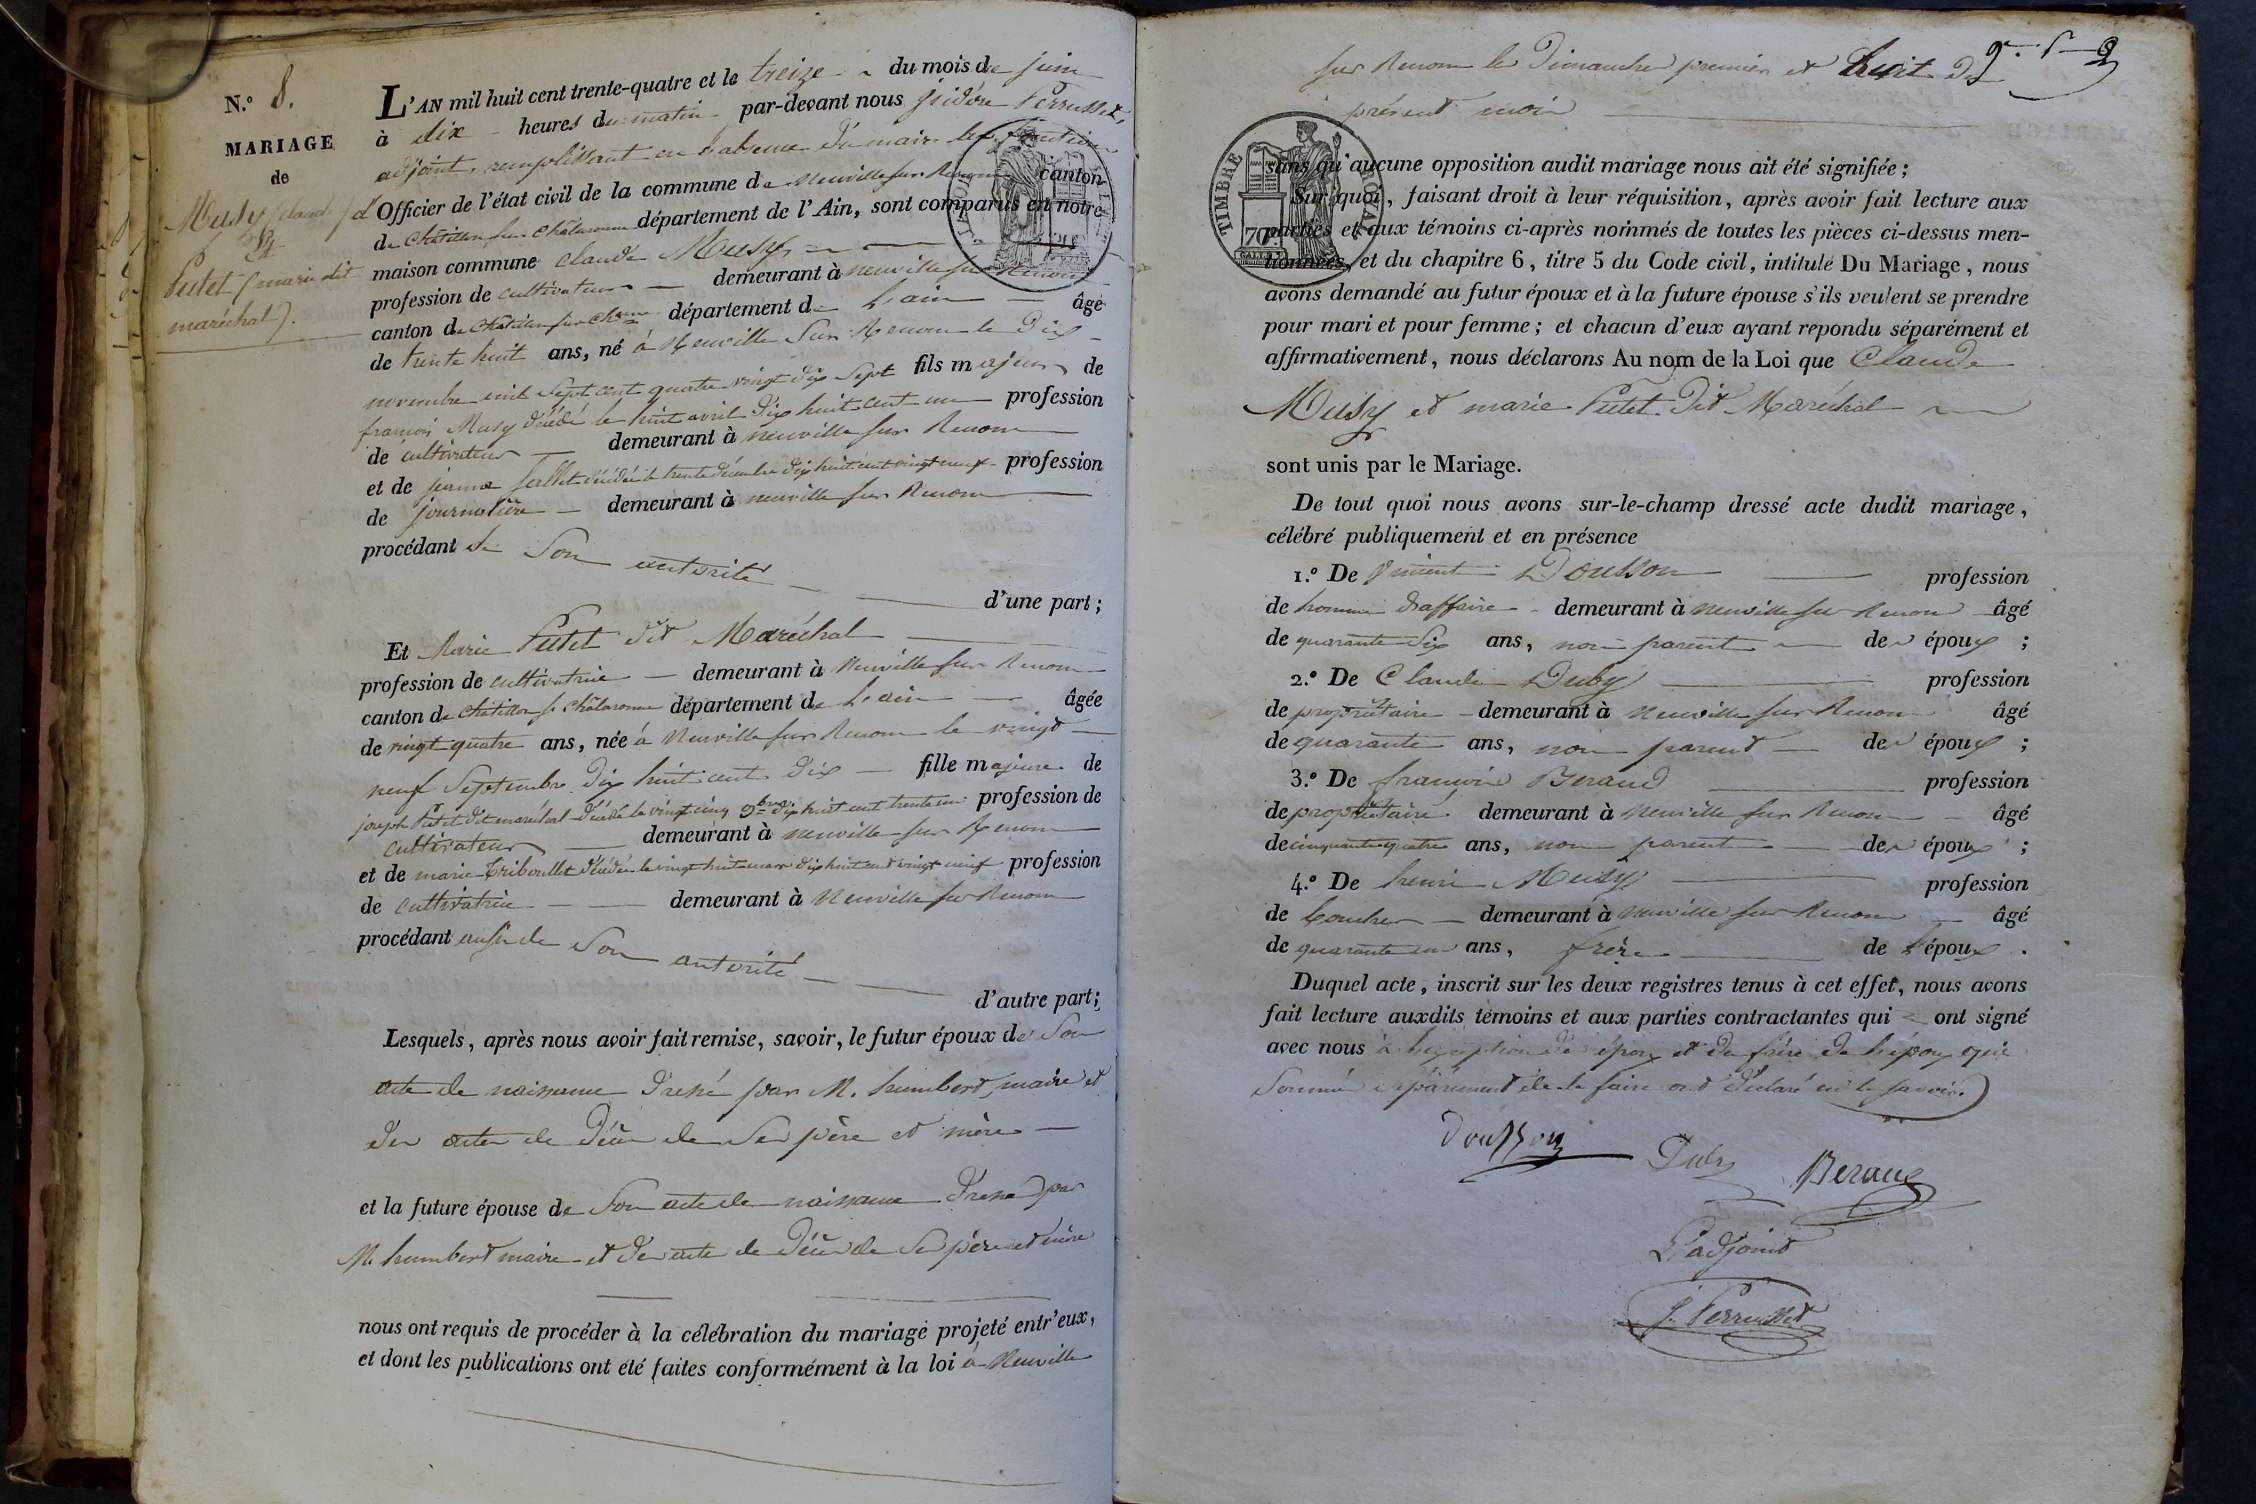 N.º 8.
MARIAGE
de
Musy Claude
&
Putet (marie dit
maréchal).
L'AN mil huit cent trente-quatre et le treize du mois de juin
à dix heures du matin par-devant nous Isidore Perrusset,
adjoint, remplissant en l'absence du maire les fonctions
d'Officier de l'état civil de la commune de neuville sur Renom canton
de Châtillon sur Chalaronne département de l'Ain, sont comparus en notre
maison commune Claude Musy
profession de cultivateur demeurant à neuville sur Renom
canton de Châtillon sur Chnne département de l'ain âgé
de trente huit ans, né à Neuville sur Renom le dix
novembre mil sept cent quatre vingt dix sept fils majeur de
françois Musy décédé le huit avril dix huit cent un profession
de cultivateur demeurant à neuville sur Renom
et de jeanne décédée le trente décembre dix huit cent vingt neuf profession
de journalière demeurant à neuville sur Renom
procédant de Son autorité
d'une part ;
Et Marie Putet dit Maréchal
profession de cultivatrice demeurant à Neuville sur Renom
canton de Châtillon s. Châlaronne département de l'ain âgée
de vingt quatre ans, née à Neuville sur Renom le vingt
neuf Septembre dix huit cent dix fille majeure de
joseph Putet dit maréchal décédé le vingt cinq 9bre dix huit cent trente un profession de
cultivateur demeurant à neuville sur Renom
et de marie Triboullet décédée le vingt huit mars dix huit cent vingt neuf profession
de cultivatrice demeurant à Neuville sur Renom
procédant aussi de Son autorité
d'autre part ;
Lesquels, après nous avoir fait remise, savoir, le futur époux de Son
acte de naissance dressé par M. humbert, maire et
des actes de décès de Ses père et mère
et la future épouse de Son acte de naissance dressé par
M. humbert maire et des acte de décès de Ses père et mère
nous ont requis de procéder à la célébration du mariage projeté entr'eux,
et dont les publications ont été faites conformément à la loi à Neuville
sur Renom le Dimanche premier et huit du
présent mois
TIMBRE ROYAL
70
sans qu'aucune opposition audit mariage nous ait été signifiée ;
Sur quoi, faisant droit à leur réquisition, après avoir fait lecture aux
parties et aux témoins ci-après nommés de toutes les pièces ci-dessus men-
tionnées, et du chapitre 6, titre 5 du Code civil, intitulé Du Mariage, nous
avons demandé au futur époux et à la future épouse s'ils veulent se prendre
pour mari et pour femme ; et chacun d'eux ayant repondu séparément et
affirmativement, nous déclarons Au nom de la Loi que Claude
Musy et marie Putet dit Maréchal
sont unis par le Mariage.
De tout quoi nous avons sur-le-champ dressé acte dudit mariage,
célébré publiquement et en présence
1.º De Vincent Dousson profession
de homme d'affaire demeurant à neuville sur Renom âgé
de quarante Six ans, non parent des époux ;
2.º De Claude Duby profession
de propriétaire demeurant à Neuville sur Renom âgé
de quarante ans, non parent des époux ;
3.º De françois Beraud profession
de propriétaire demeurant à Neuville sur Renom âgé
de cinquante quatre ans, non parent des époux ;
4.º De henri Musy profession
de demeurant à neuville sur Renom âgé
de quarante un ans, frère de l'époux .
Duquel acte, inscrit sur les deux registres tenus à cet effet, nous avons
fait lecture auxdits témoins et aux parties contractantes qui ont signé
avec nous à l'exception des époux et du frère de l'époux qui
Sommés séparément de le faire ont déclaré ne le savoir.
Dousson
Duby
Beraud
L'adjoint
J. Perrusset